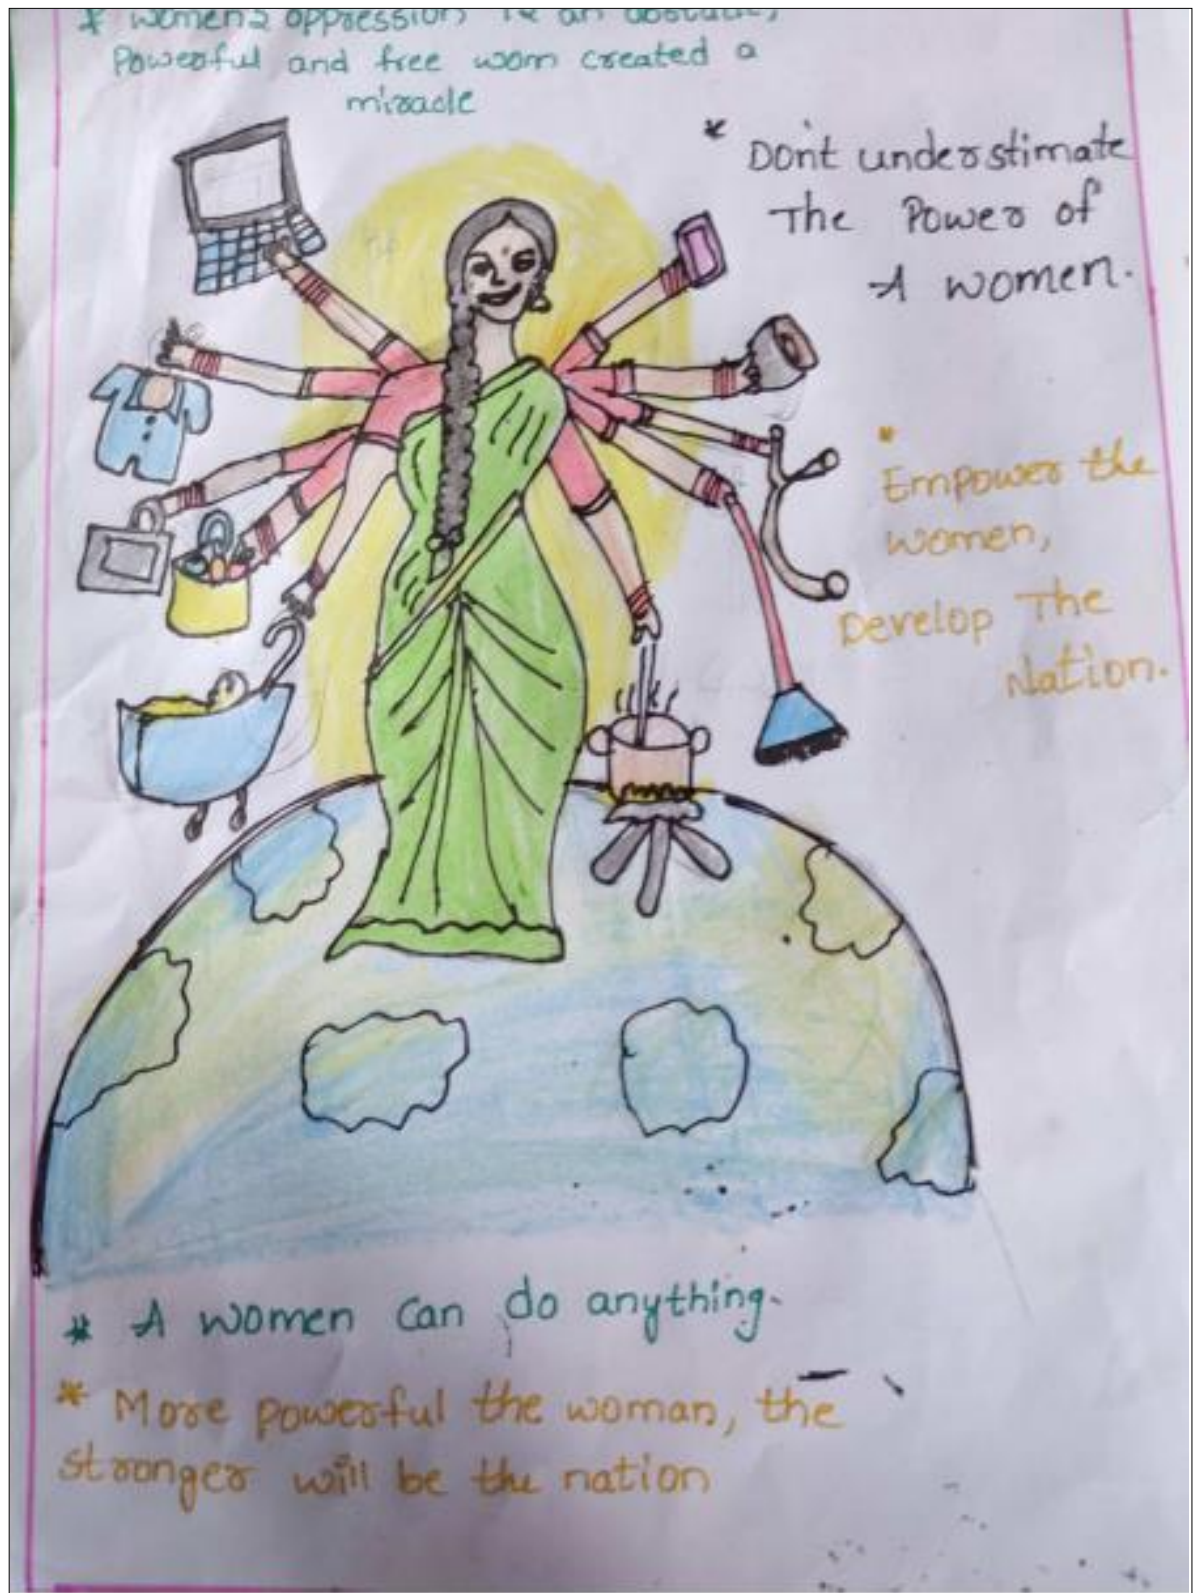 * women2 oppression is an obstacle,
Powerful and free wom created a
miracle
* Don't understimate
The Power of
A women.
*
Empower the
women,
Develop The
Nation.
* A women can do anything.
* More powerful the woman, the
stronger will be the nation